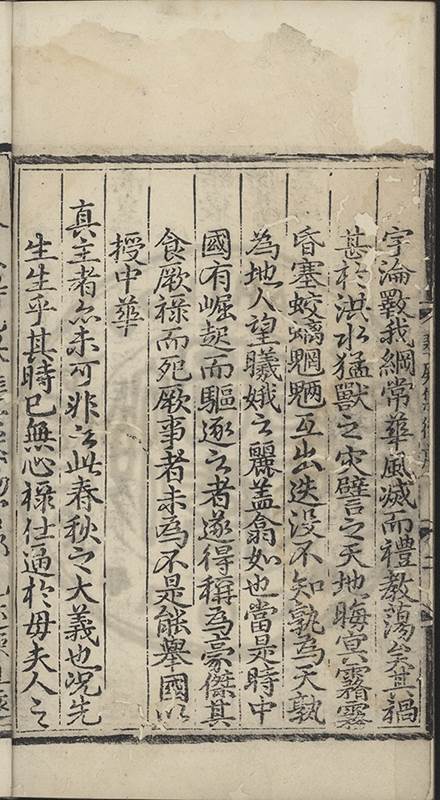 宇淪斁我綱常華風滅而禮教蕩矣其禍
甚於洪水猛獸之灾譬之天地晦宴霧霧
昏塞蛟螭魍魎互出迭没不知孰為天孰
為地人望曦娥之麗盖翕如也當是時中
國有崛起而驅逐之者遂得稱為豪傑其
食厥禄而死厥事者未為不是能舉國以
授中華
真主者亦未可非之此春秋之大義也况先
生生乎其時已無心禄仕逼於母夫人之